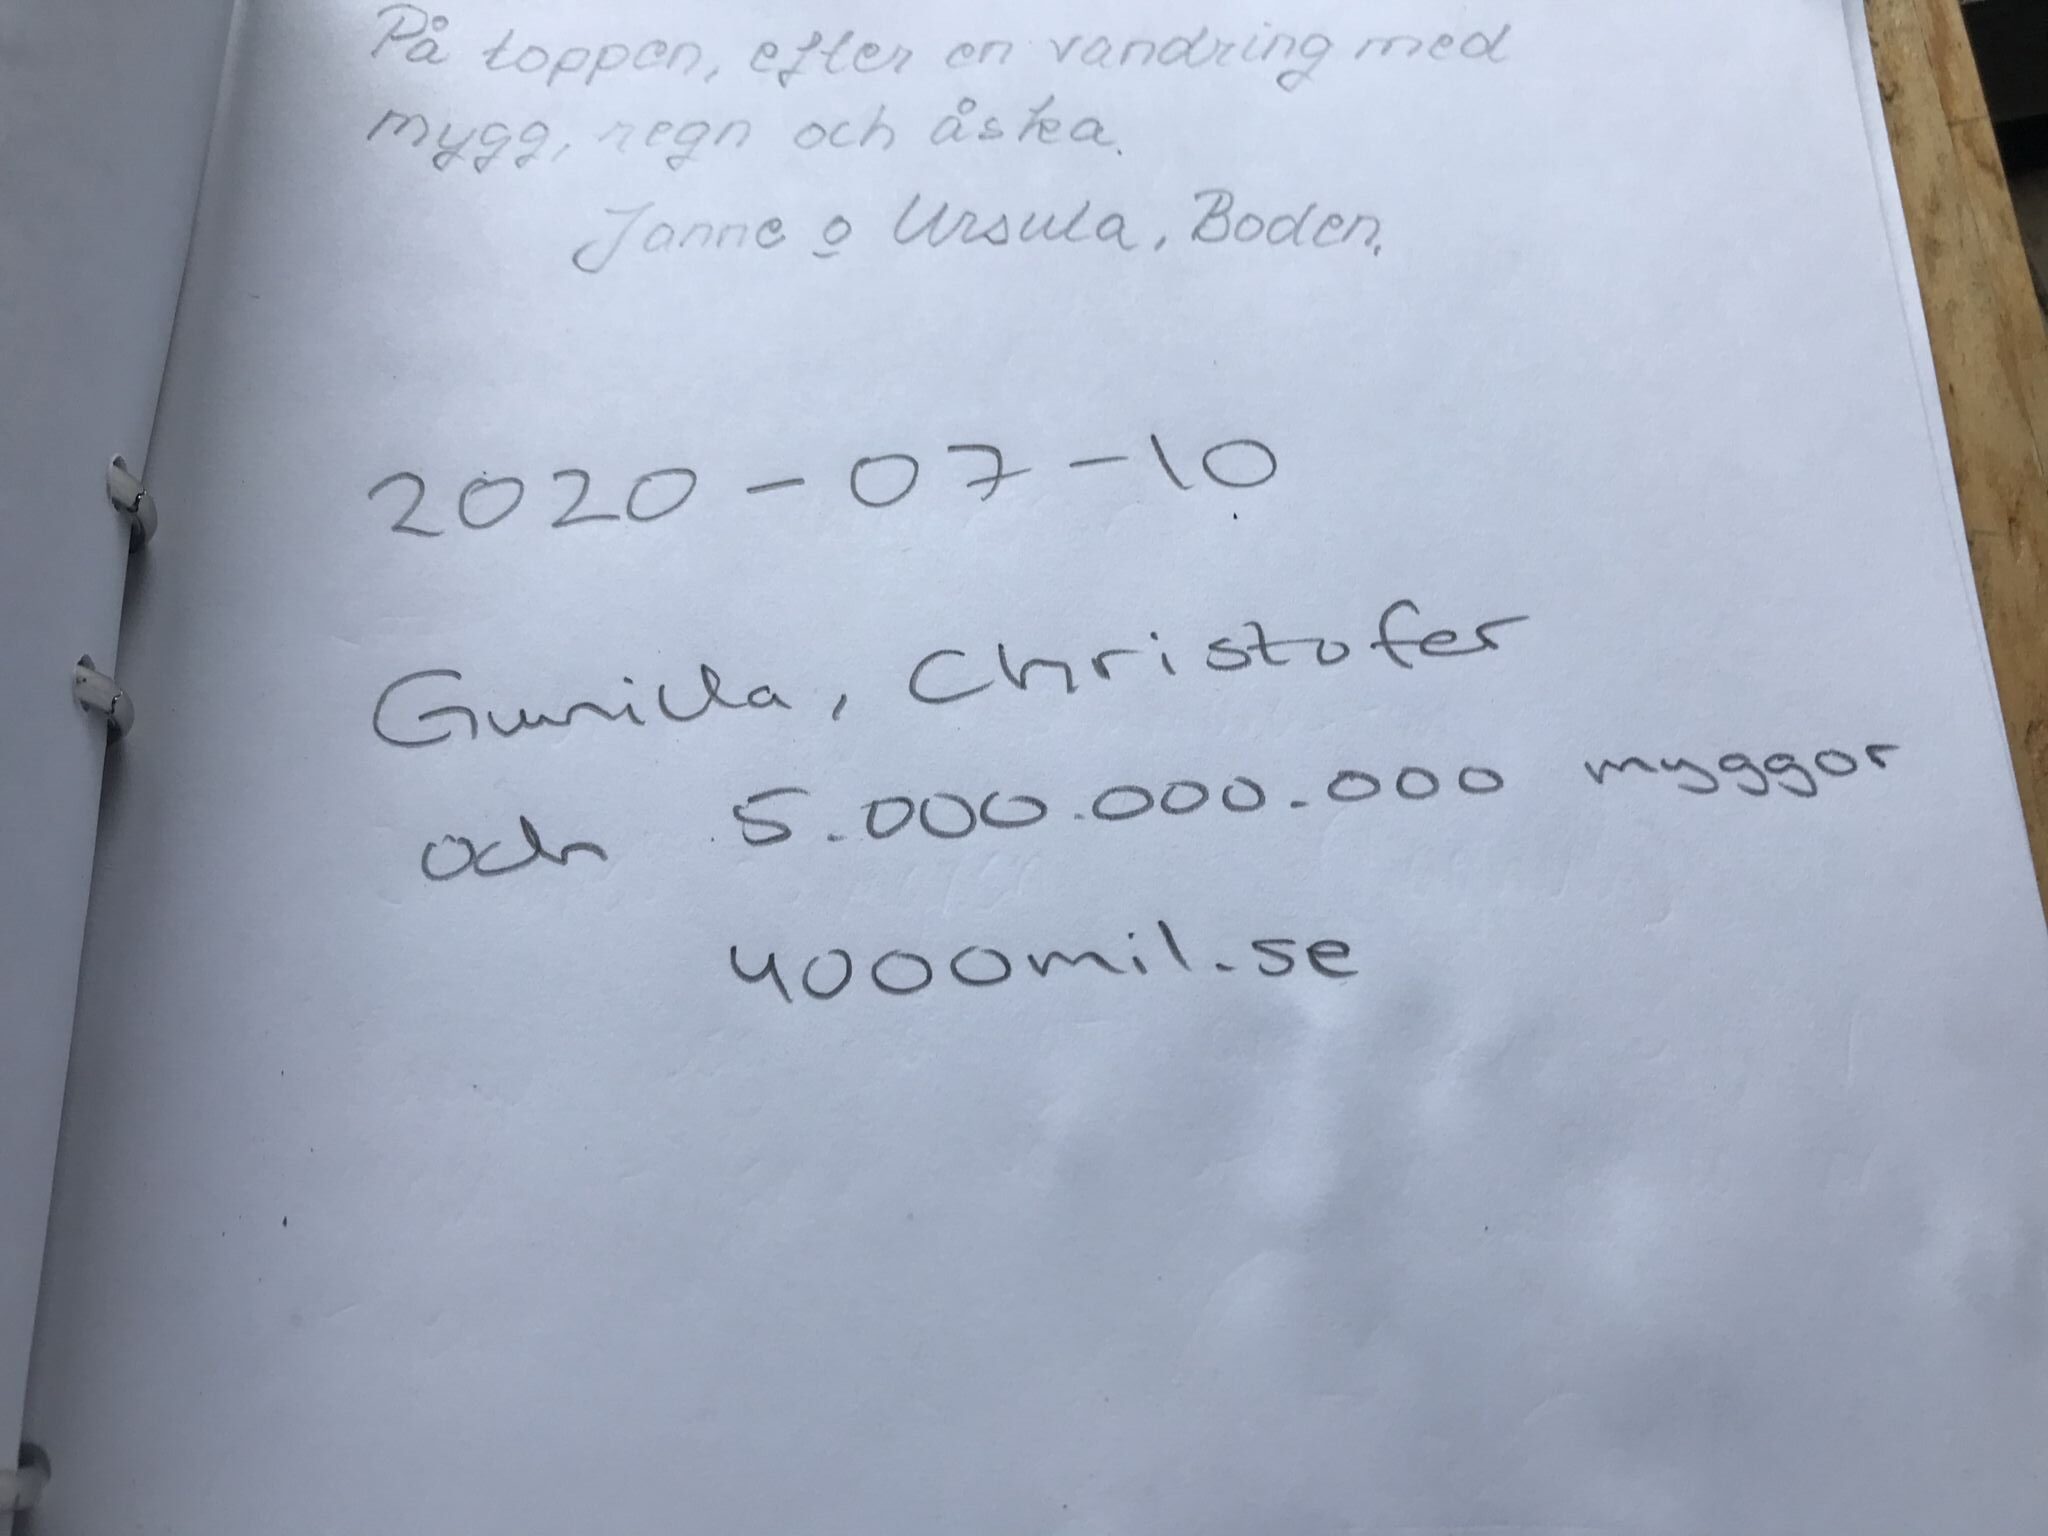 På toppen, efter en vandring med
mygg, regn och åska.
Janne o Ursula, Boden.
2020-07-10
Gunilla, Christofer
och 5.000.000.000 myggor
4000mil.se